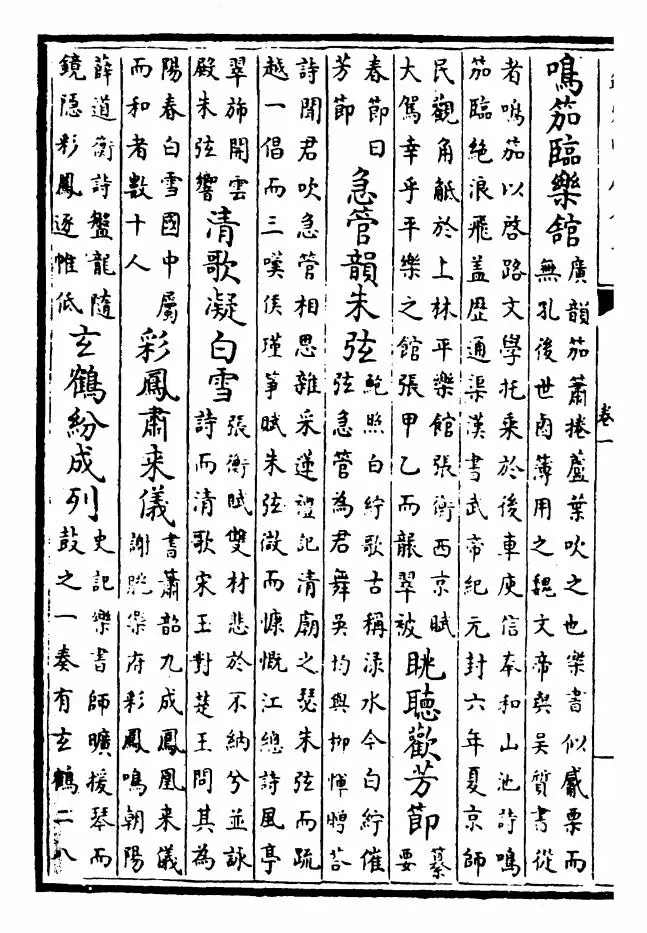 卷一
鳴笳臨樂舘
廣韻笳簫捲蘆葉吹之也樂書似觱栗而
無孔後世鹵簿用之魏文帝與吳質書從
者鳴笳以啓路文學托乗於後車庾信奉和山池詩鳴
笳臨絶浪飛盖歴通渠漢書武帝紀元封六年夏京師
民觀角觝於上林平樂館張衡西京賦
大駕幸乎平樂之館張甲乙而襲翠被
眺聽歡芳節
纂
要
春節曰
芳節
急管韻朱弦
鮑照白紵歌古稱淥水今白紵催
弦急管為君舞吳均與柳惲荅
詩聞君吹急管相思雜采蓮禮記清廟之瑟朱弦而疏
越一倡而三嘆侯瑾箏賦朱弦微而慷慨江總詩風亭
翠斾開雲
殿朱弦響
清歌凝白雪
張衡賦雙材悲於不納兮並詠
詩而清歌宋玉對楚王問其為
陽春白雪國中屬
而和者數十人
彩鳳肅来儀
書蕭韶九成鳳凰来儀
謝朓樂府彩鳳鳴朝陽
薛道衡詩盤龍隨
鏡隱彩鳳逐帷低
玄鶴紛成列
史記樂書師曠援琴而
鼓之一奏有玄鶴二八